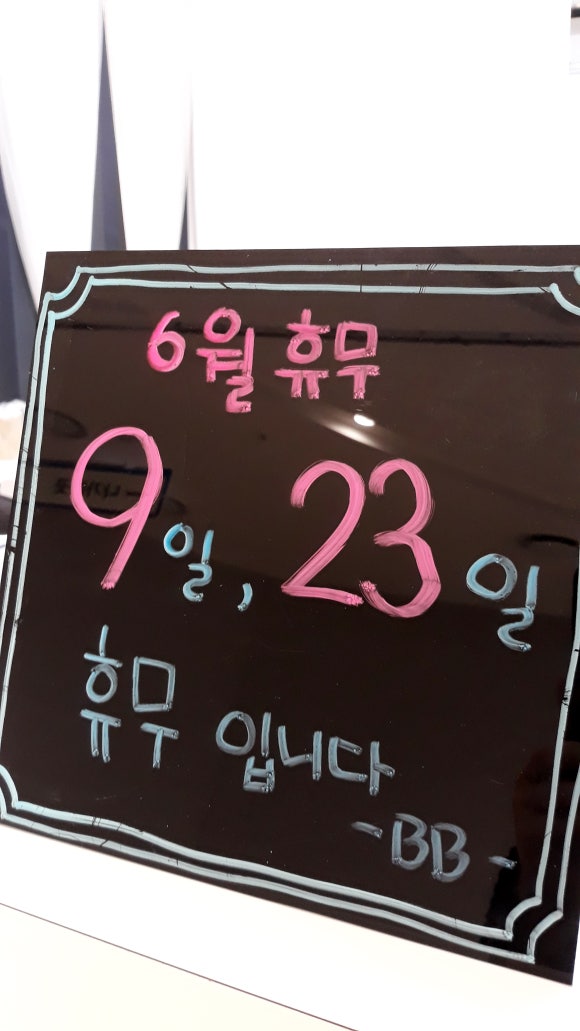 6월 휴무
9일, 23일
휴무 입니다
-BB-